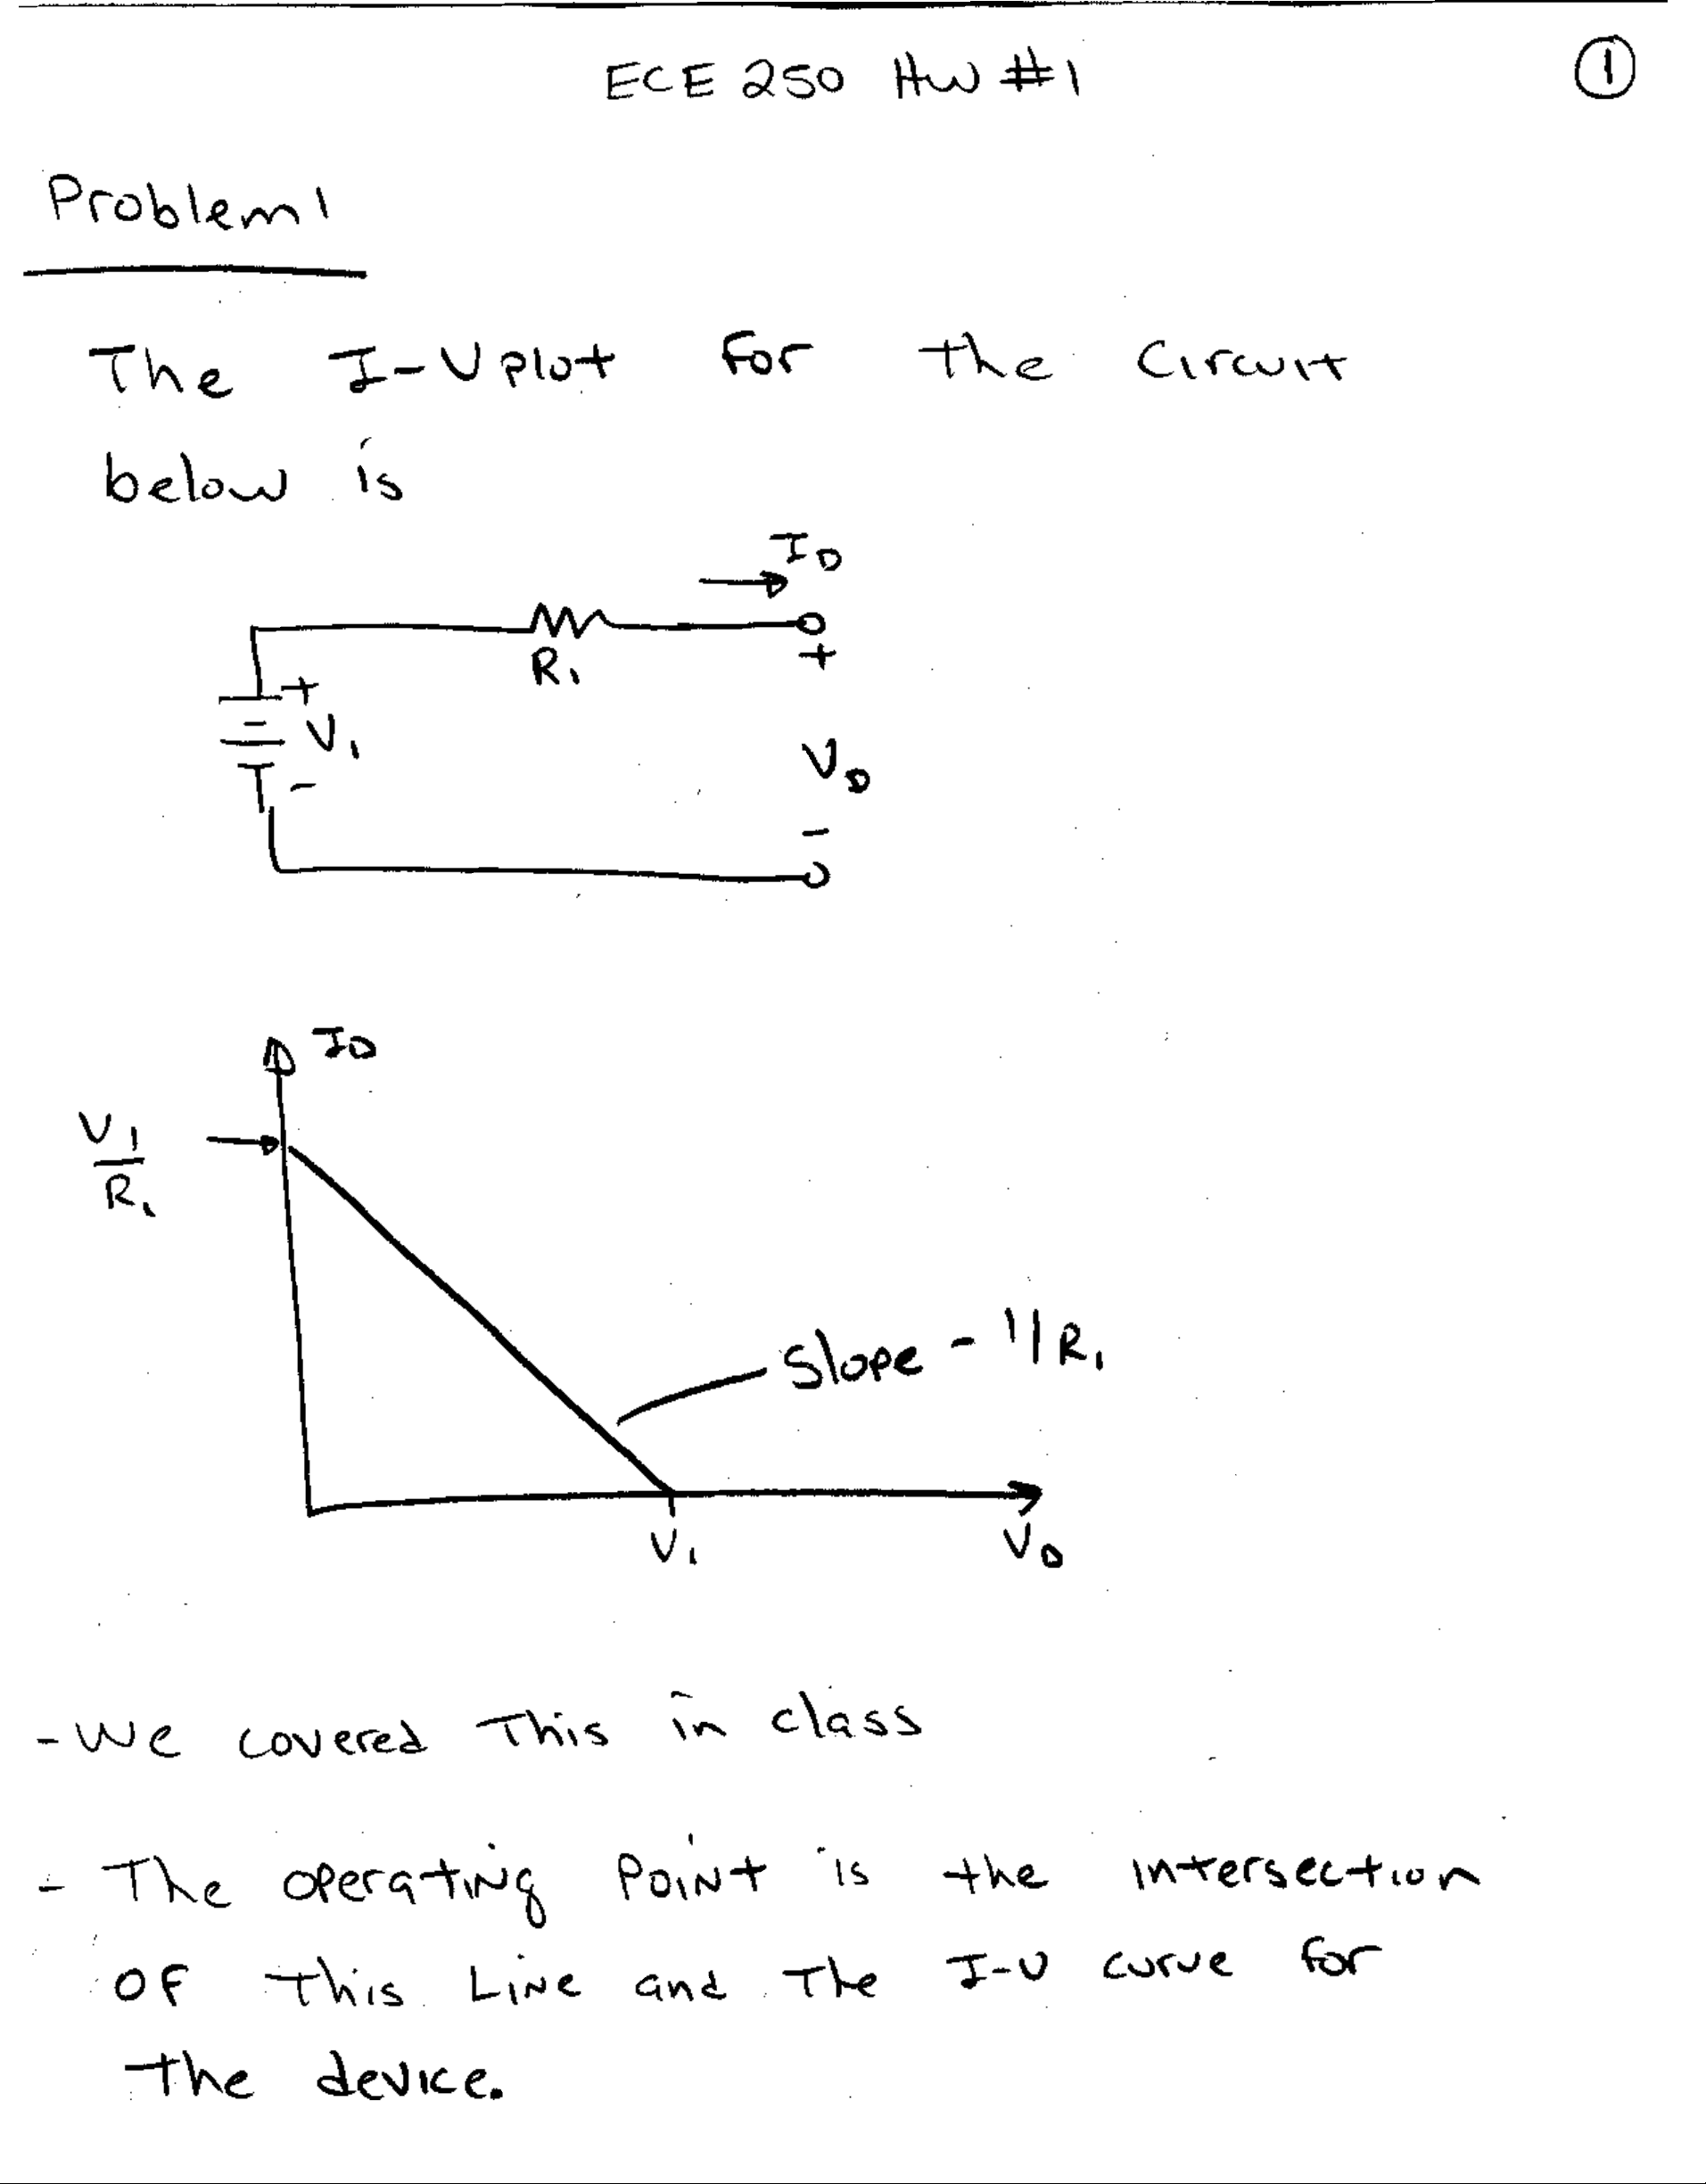 ECE 250 HW #1
1
Problem 1
The I-V plot for the circuit
below is
ID
+
R1
+
V1
VD
-
-
ID
V1
R1
Slope - 1/R1
V1
VD
- We covered This in class
- The operating Point is the intersection
of this Line and the I-V curve for
the device.